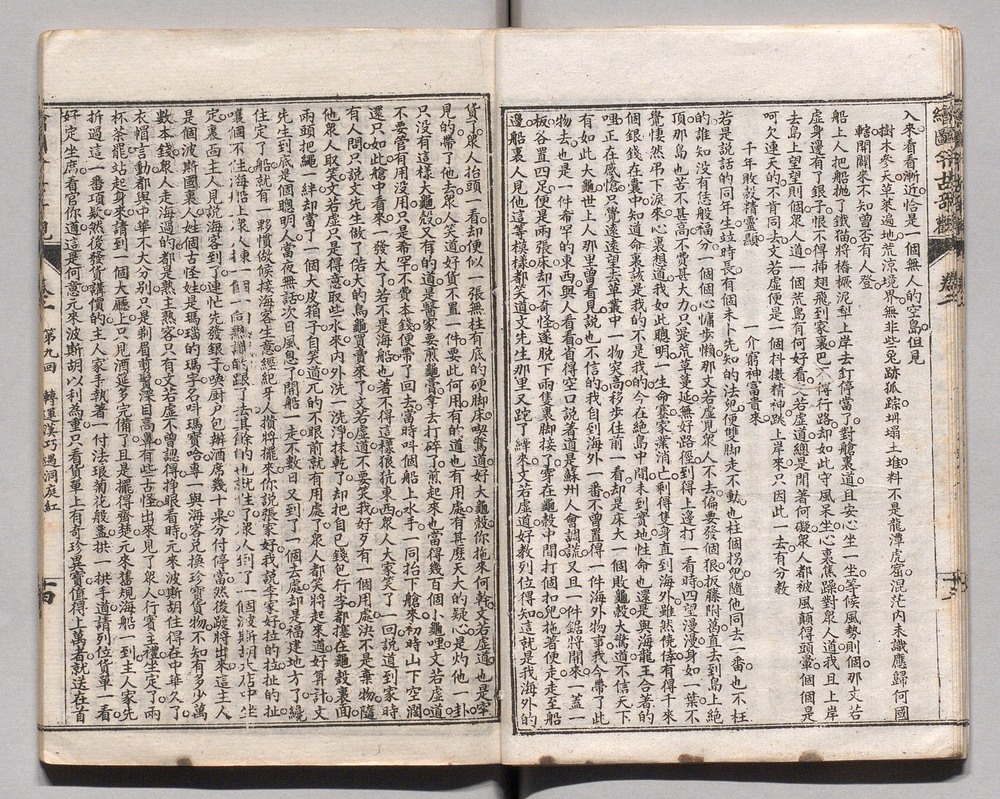 繪圖今古奇觀 卷二
入來看看漸近恰是一個無人的空島但見
樹木參天草萊遍地荒涼境界無非些兔跡狐踪坍塌土堆料不是龍潭虎窟混茫內未識應歸何國
轄開闢來不知曾否有人登
船上人把船拋了鐵貓將樁橛泥犁上岸去釘停當了對艙裏道且安心坐一坐等候風勢則個那文若
虛身邊有了銀子恨不得揷翅飛到家裏巴不得行路却如此守風呆坐心裏焦躁對衆人道我且上岸
去島上望望則個衆人道一個荒島有何好看文若虛道總是閒著何礙衆人都被風顛得頭暈個個是
呵欠連天的不肯同去文若虛便是一個抖擻精神跳上岸來只因此一去有分教
千年敗殼精靈顯 一介窮神富貴來
若是說話的同年生竝時長有個未卜先知的法兒便雙脚走不動也柱個拐兒隨他同去一番也不枉
的誰知沒有恁般福分一個個心慵步懶那文若虛見衆人不去偏要發個狠扳藤附葛直去到島上絕
頂那島也苦不甚高不費甚大力只是荒草蔓延無好路徑到得上邊打一看時四望漫漫身如一葉不
覺悽然弔下淚來心裏想道我如此聰明一生命蹇家業消亡剩得隻身直到海外雖然僥倖有得千來
個銀錢在囊中知道命裏該是我的不是我的今在絕島中間未到實地性命也還是與海龍王合著的
哩正在感愴只覺遠遠望去草叢中一物突高移步往前一看却是床大一個敗龜殼大驚道不信天下
有如此大龜世上人那里曾看見說也不信的我自到海外一番不曾置得一件海外物事我今帶了此
物去也是一件希罕的東西與人看看省得空口說著道是蘇州人會調謊又且一件鋸將開來一蓋一
板各置四足便是兩張床却不奇怪遂脫下兩隻裏脚接了穿在龜殼中間打個扣兒拖著便走走至船
邊船裏人見他這等模樣都笑道文先生那里又跎了縴來文若虛道好教列位得知這就是我海外的
貨了衆人抬頭一看却便似一張無柱有底的硬脚床喫驚道好大龜殼你拖來何幹文若虛道也是罕
見的帶了他去衆人笑道好貨不置一件要此何用有的道也有用處有甚麽天大的疑心是灼他一卦
只沒有這樣大龜殼又有的道是醫家要煎龜膏拿去打碎了煎起來也當得幾百個小龜哩文若虛道
不要管有用沒用只是希罕不費本錢便帶了回去當時叫個船上水手一同抬下艙來初時山下空濶
還只如此艙中看來一發大了若不是海船也著不得這樣狼抗東西衆人大家笑了一回說道到家時
有人問只說文先生做了偌大的烏龜買賣來了文若虛道不要笑我好歹有一個用處決不是棄物隨
他衆人取笑文若虛只是得意取些水來內外洗一洗淨抹乾了却把自已錢包行李都搂在龜殼裏面
兩頭把繩一絆却當了一個大皮箱子自笑道兀的不眼前就有用處了衆人都笑將起來道好算計文
先生到底是個聰明人當夜無話次日風息了開船一走不數日又到了一個去處却是福建地方了纔
住定了船就有一夥慣做候接海客主意經紀牙人攢將攏來你說張家好我說李家好拉的拉扯的扯
嚷個不住海船上衆人揀一個一向熟識的跟了去其餘的也就住了衆人到了一個波斯胡大店中坐
定裏面主人見說海客到了連忙先發銀子喚厨戶包辦酒席幾十桌分付停當然後踱將出來這主人
是個波斯國裏人姓個古怪姓是瑪瑙的瑪字名叫瑪寶哈專一與海客兌換珍寶貨物不知有多少萬
數本錢衆人走海過的都是熟主熟客只有文若虛不曾認得抬眼看時元來波斯胡住得在中華久了
衣帽言動都與中華不大分別只是剃眉剪鬚深目高鼻有些古怪出來見了衆人行賓主禮坐定了兩
杯茶罷站起身來請到一個大廳上只見酒筵多完備了且是擺得齊楚元來舊規海船一到主人家先
折過這一番項欵然後發貨講價的主人家手執著一付法琅菊花般盞拱一拱手道請列位貨單一看
好定坐席看官你道這是何意元來波斯胡以利為重只看貨單上有奇珍異寶值得上萬者就送在首
卷二 第九囘 轉運漢巧遇洞庭紅
十四